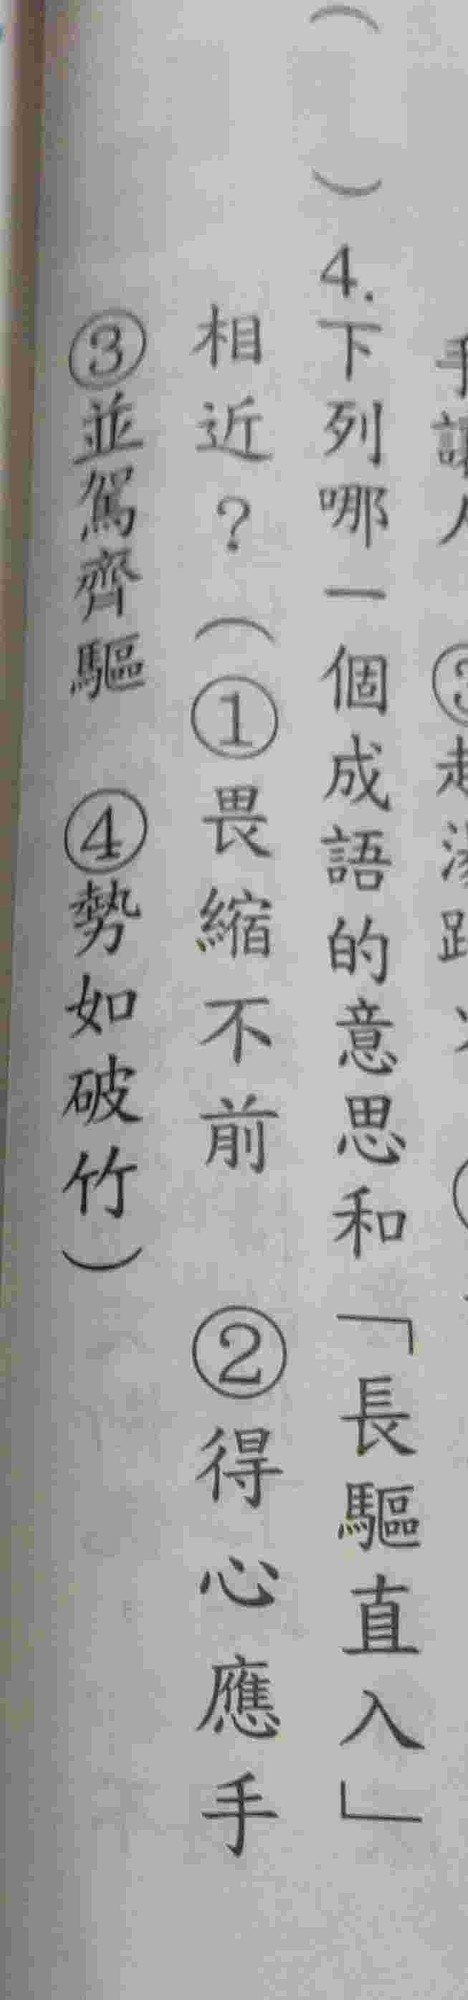 手讓人 ③赴湯蹈火
( )4.下列哪一個成語的意思和「長驅直入」
相近？(①畏縮不前 ②得心應手
③並駕齊驅 ④勢如破竹)